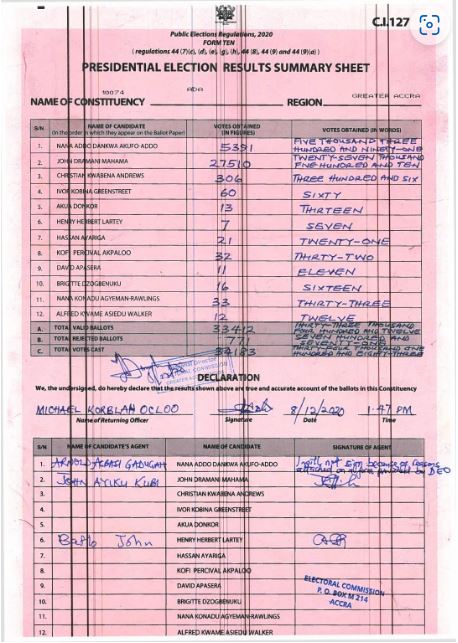 C.I.127
Public Elections Regulations, 2020
FORM TEN
( regulations 44 (7)(c), (d), (e), (g), (h), 44 (8), 44 (9) and 44 (9)(a) )
PRESIDENTIAL ELECTION RESULTS SUMMARY SHEET
10074 ADA GREATER ACCRA
NAME OF CONSTITUENCY REGION
S/N NAME OF CANDIDATE (In the order in which they appear on the Ballot Paper) VOTES OBTAINED (IN FIGURES) VOTES OBTAINED (IN WORDS)
1. NANA ADDO DANKWA AKUFO-ADDO 5391 FIVE THOUSAND THREE HUNDRED AND NINETY-ONE
2. JOHN DRAMANI MAHAMA 27510 TWENTY-SEVEN THOUSAND FIVE HUNDRED AND TEN
3. CHRISTIAN KWABENA ANDREWS 306 THREE HUNDRED AND SIX
4. IVOR KOBINA GREENSTREET 60 SIXTY
5. AKUA DONKOR 13 THIRTEEN
6. HENRY HERBERT LARTEY 7 SEVEN
7. HASSAN AYARIGA 21 TWENTY-ONE
8. KOFI PERCIVAL AKPALOO 32 THIRTY-TWO
9. DAVID APASERA 11 ELEVEN
10. BRIGITTE DZOGBENUKU 16 SIXTEEN
11. NANA KONADU AGYEMAN-RAWLINGS 33 THIRTY-THREE
12. ALFRED KWAME ASIEDU WALKER 12 TWELVE
A. TOTAL VALID BALLOTS 33412 THIRTY-THREE THOUSAND FOUR HUNDRED AND TWELVE
B. TOTAL REJECTED BALLOTS 771 SEVEN HUNDRED AND SEVENTY-ONE
C. TOTAL VOTES CAST 34183 THIRTY-FOUR THOUSAND ONE HUNDRED AND EIGHTY-THREE
DECLARATION
We, the undersigned, do hereby declare that the results shown above are true and accurate account of the ballots in this Constituency
MICHAEL KORBLAH OCLOO 8/12/2020 1:47 PM
Name of Returning Officer Signature Date Time
S/N NAME OF CANDIDATE'S AGENT NAME OF CANDIDATE SIGNATURE OF AGENT
1. ARNOLD NANA ADDO DANKWA AKUFO-ADDO I will not sign because of reasons attached on a form provided by DEO
2. JOHN AYIKU KUBI JOHN DRAMANI MAHAMA
3. CHRISTIAN KWABENA ANDREWS
4. IVOR KOBINA GREENSTREET
5. AKUA DONKOR
6. John HENRY HERBERT LARTEY
7. HASSAN AYARIGA
8. KOFI PERCIVAL AKPALOO
9. DAVID APASERA
10. BRIGITTE DZOGBENUKU
11. NANA KONADU AGYEMAN-RAWLINGS
12. ALFRED KWAME ASIEDU WALKER
ELECTORAL COMMISSION
P. O. BOX M 214
ACCRA